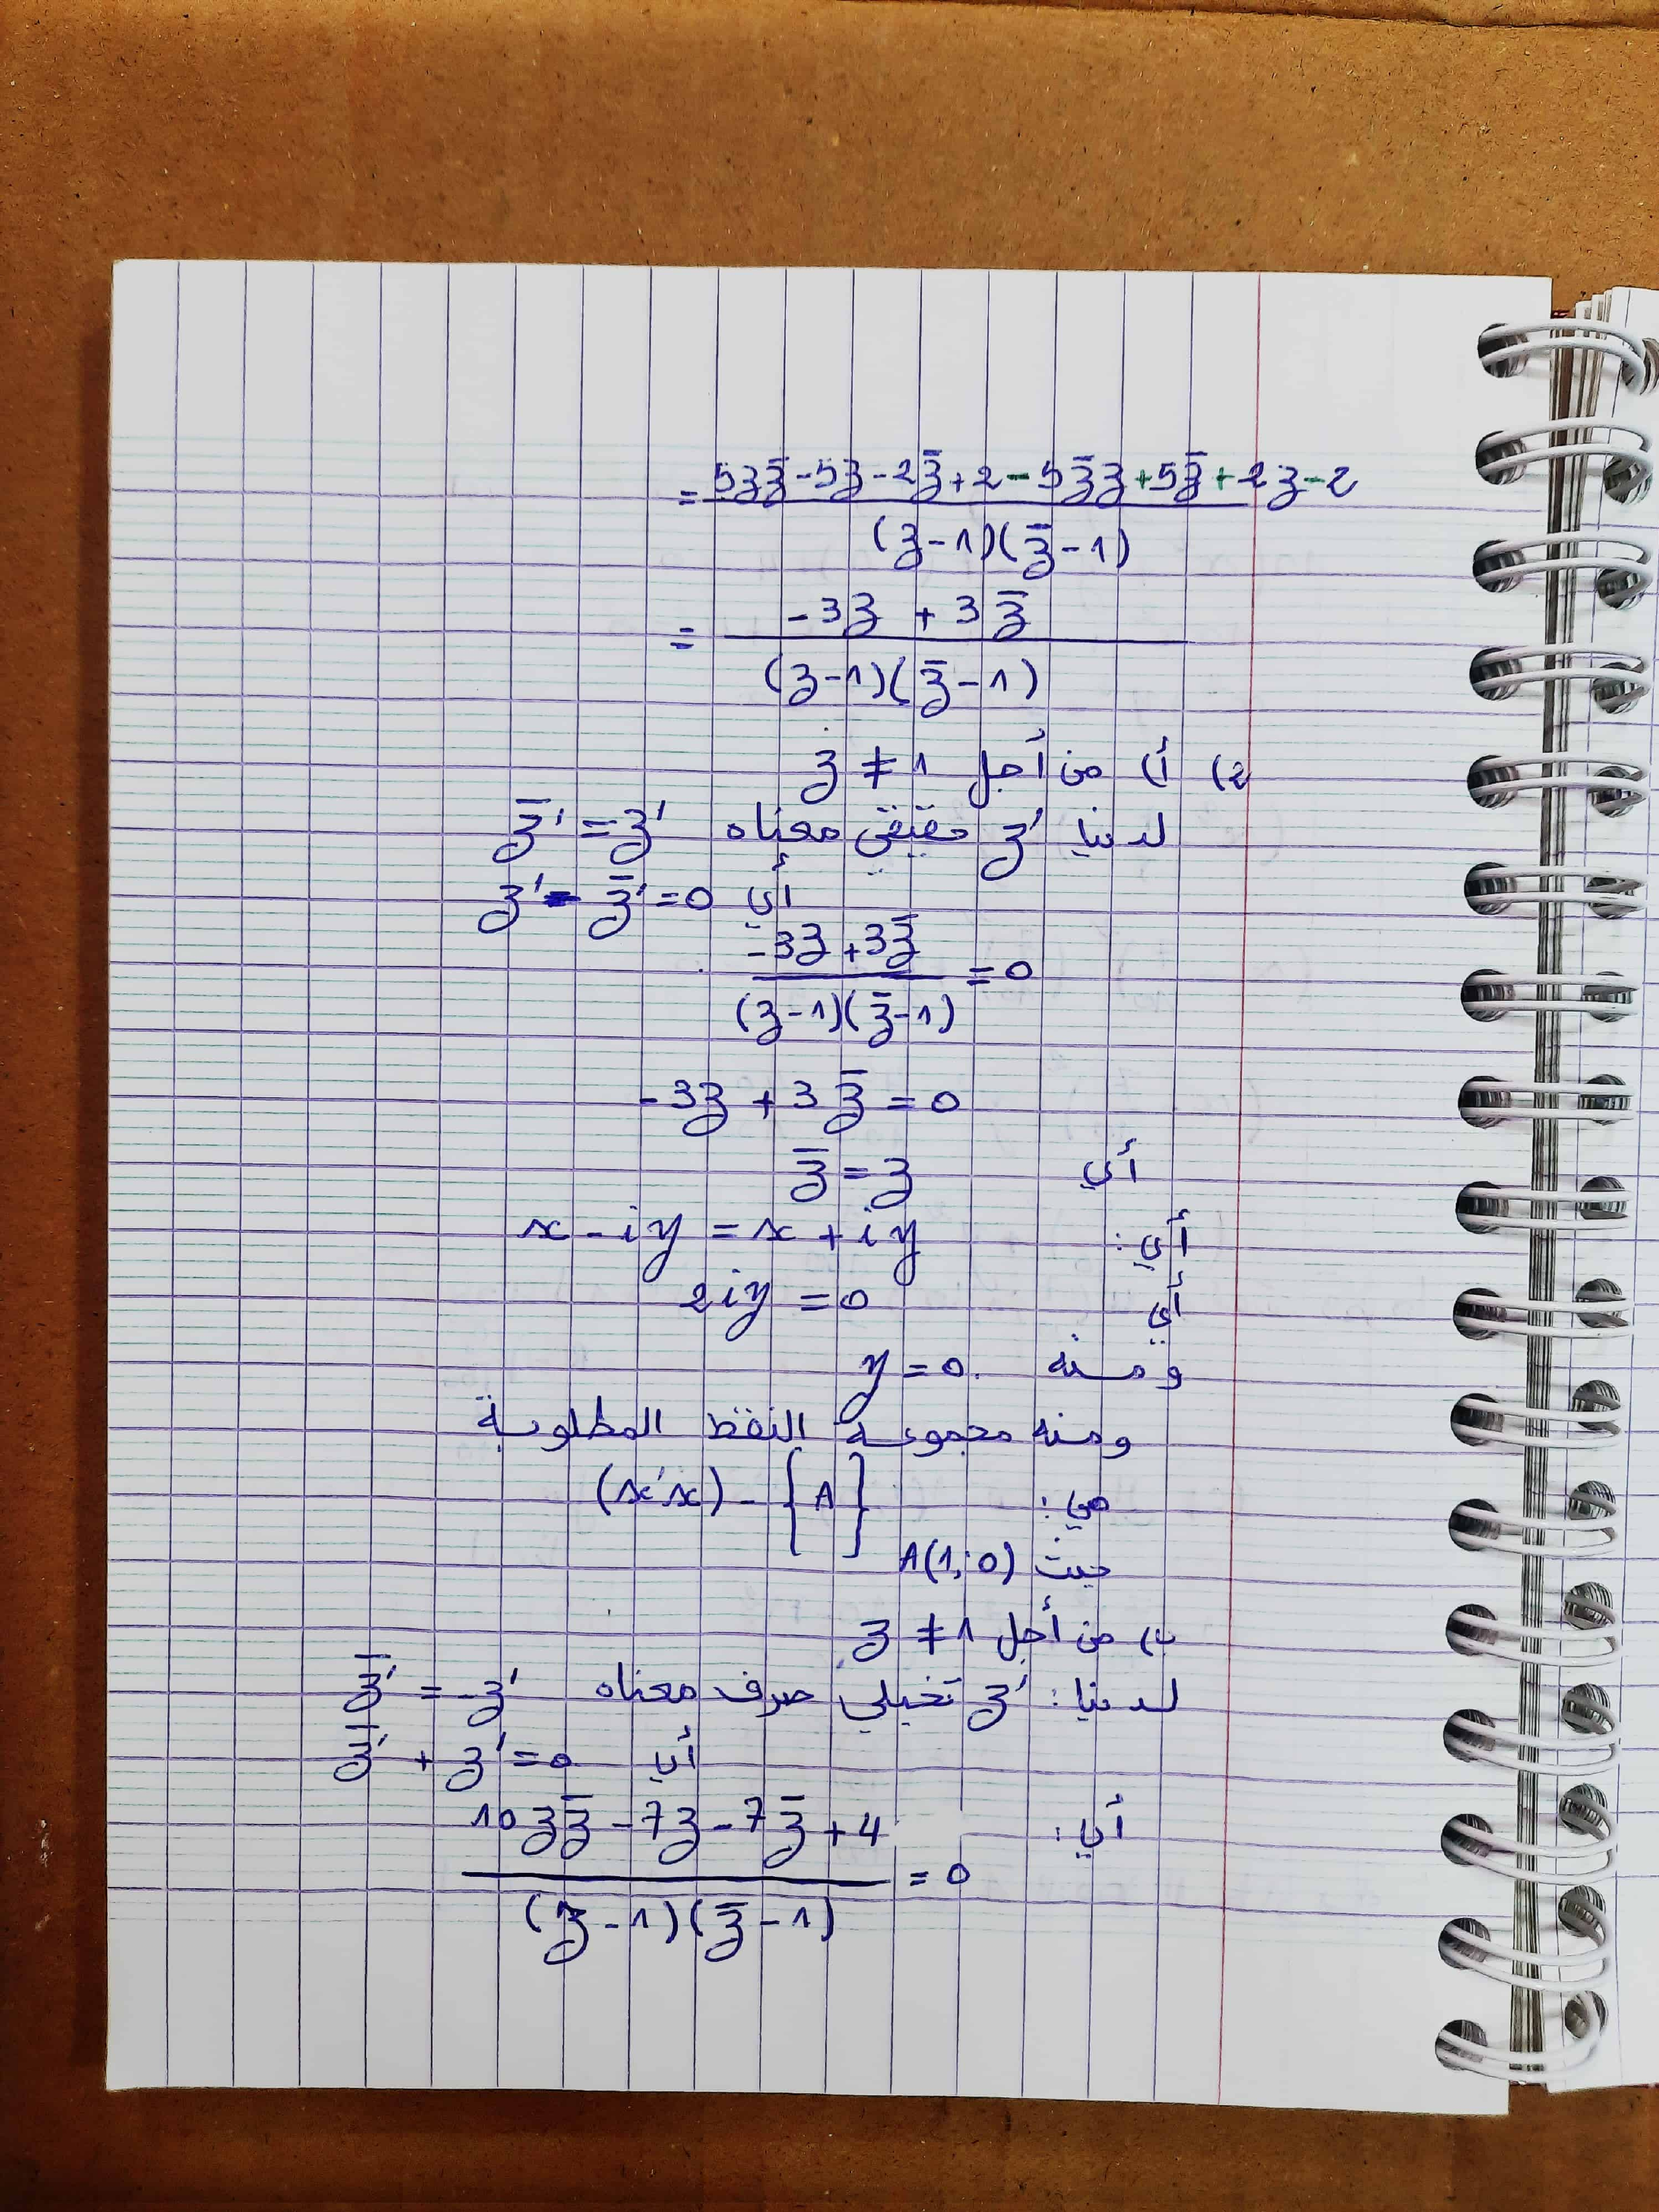 = (5z z̄ - 5z - 2z̄ + 2 - 5z̄ z + 5z̄ + 2z - 2) / ((z - 1)(z̄ - 1))
= (-3z + 3z̄) / ((z - 1)(z̄ - 1))
2) أ) من أجل z ≠ 1
لدينا z' حقيقي معناه z̄' = z'
أي z' - z̄' = 0
(-3z + 3z̄) / ((z - 1)(z̄ - 1)) = 0
-3z + 3z̄ = 0
أي z̄ = z
أي: x - iy = x + iy
أي 2iy = 0
ومنه y = 0.
ومنه مجموعة النقط المطلوبة
هي: (x'x) - {A}
حيث A(1; 0)
ب) من أجل z ≠ 1
لدينا: z' تخيلي صرف معناه z̄' = -z'
أي z̄' + z' = 0
أي: (10z z̄ - 7z - 7z̄ + 4) / ((z - 1)(z̄ - 1)) = 0